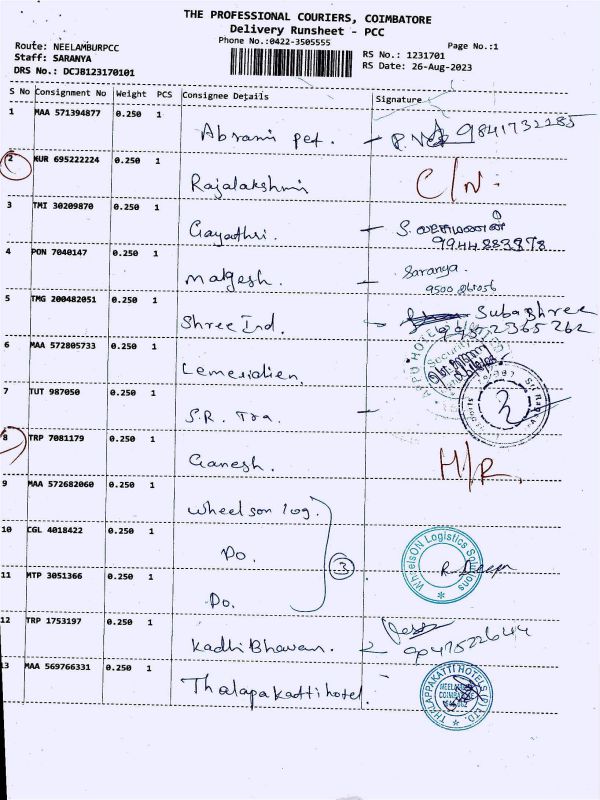 THE PROFESSIONAL COURIERS, COIMBATORE
Delivery Runsheet - PCC
Phone No.:0422-3505555
Page No.:1
Route: NEELAMBURPCC
Staff: SARANYA
DRS No.: DCJB123170101
RS No.: 1231701
RS Date: 26-Aug-2023
S No Consignment No Weight PCS Consignee Details Signature
1 MAA 571394877 0.250 1
Abrami pet. - 9841732185
2 KUR 695222224 0.250 1
Rajalakshmi C/N.
3 TMI 30209870 0.250 1
Gayathri. - S.
9944883878
4 PON 7040147 0.250 1
Malgesh. - Saranya.
9500
5 TMG 200482051 0.250 1
Shree Ind. - Subashree
2365262
6 MAA 572805733 0.250 1
Lemeridien.
APPU HOTEL
Security
7 TUT 987050 0.250 1
S.R. Tra. -
8 TRP 7081179 0.250 1
Ganesh. H/R.
9 MAA 572682060 0.250 1
Wheelson log.
10 CGL 4018422 0.250 1
Do. 3
WheelsON Logistics Solutions
11 MTP 3051366 0.250 1
Do.
12 TRP 1753197 0.250 1
Kadhi Bhavan. 9047522644
13 MAA 569766331 0.250 1
Thalapakatti hotel.
THALAPPAKATTI HOTELS (P) LTD.
COIMBATORE